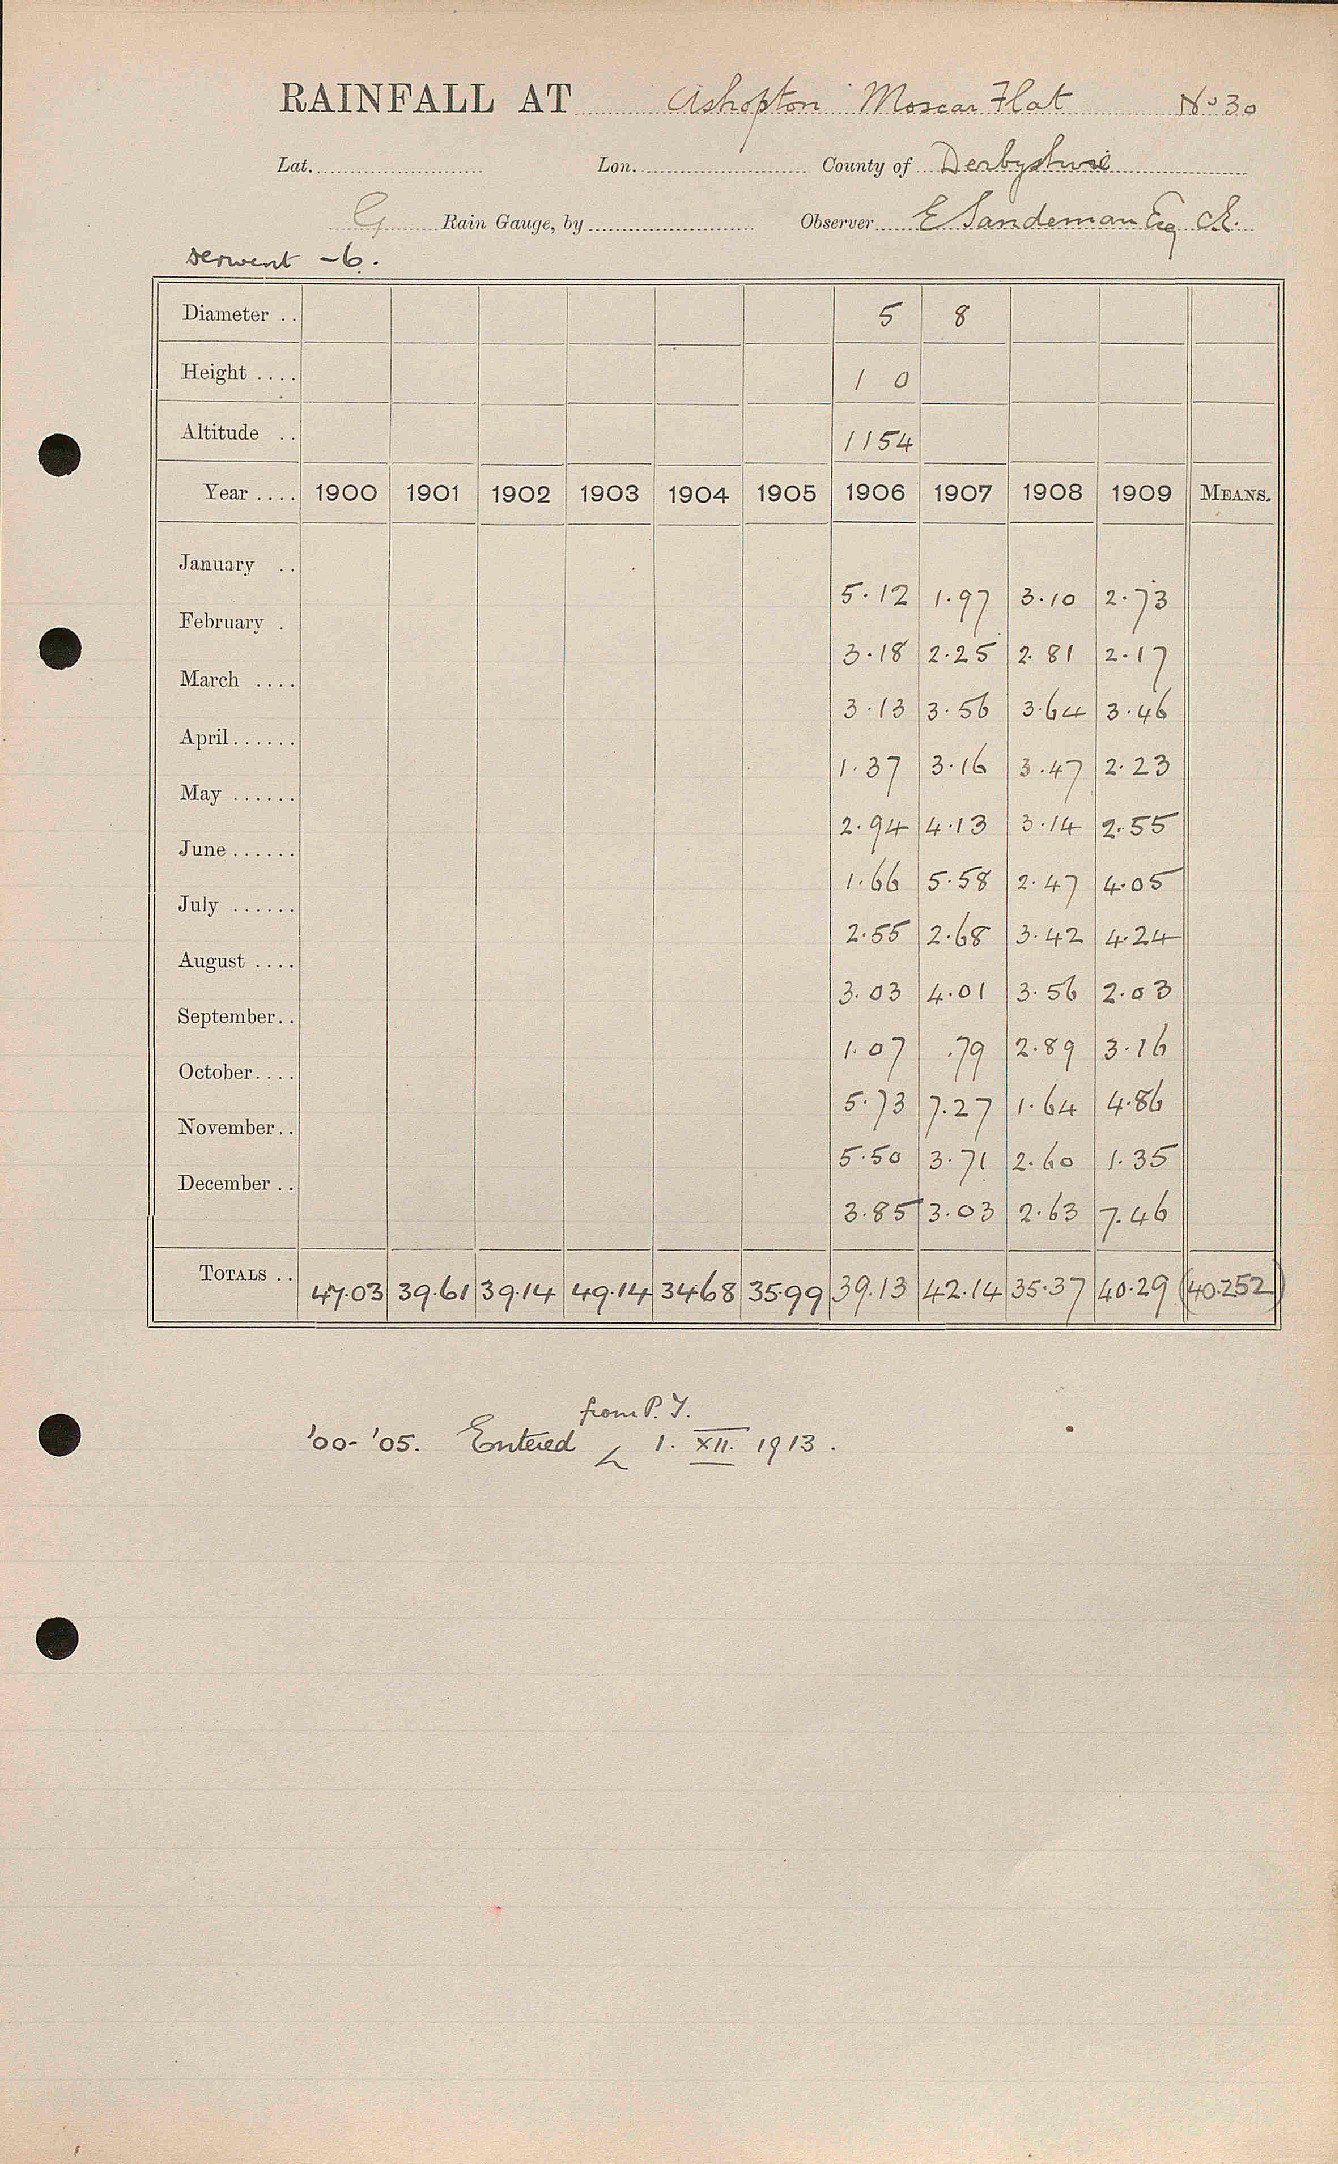 RAINFALL AT Ashopton Moscar Flat No 30
Lat. Lon. County of Derbyshire
G Rain Gauge, by Observer E Sandeman Esq C.E.
Derwent - 6.
Diameter .. 5 8
Height .... 1 0
Altitude .. 1154
Year .... 1900 1901 1902 1903 1904 1905 1906 1907 1908 1909 MEANS.
January .. 5.12 1.97 3.10 2.73
February . 3.18 2.25 2.81 2.17
March .... 3.13 3.56 3.64 3.46
April...... 1.37 3.16 3.47 2.23
May ...... 2.94 4.13 3.14 2.55
June...... 1.66 5.58 2.47 4.05
July ...... 2.55 2.68 3.42 4.24
August .... 3.03 4.01 3.56 2.03
September.. 1.07 .79 2.89 3.16
October.... 5.73 7.27 1.64 4.86
November.. 5.50 3.71 2.60 1.35
December .. 3.85 3.03 2.63 7.46
TOTALS .. 47.03 39.61 39.14 49.14 34.68 35.99 39.13 42.14 35.37 40.29 (40.252)
from P.Y.
'00-'05. Entered 1. XII. 1913.